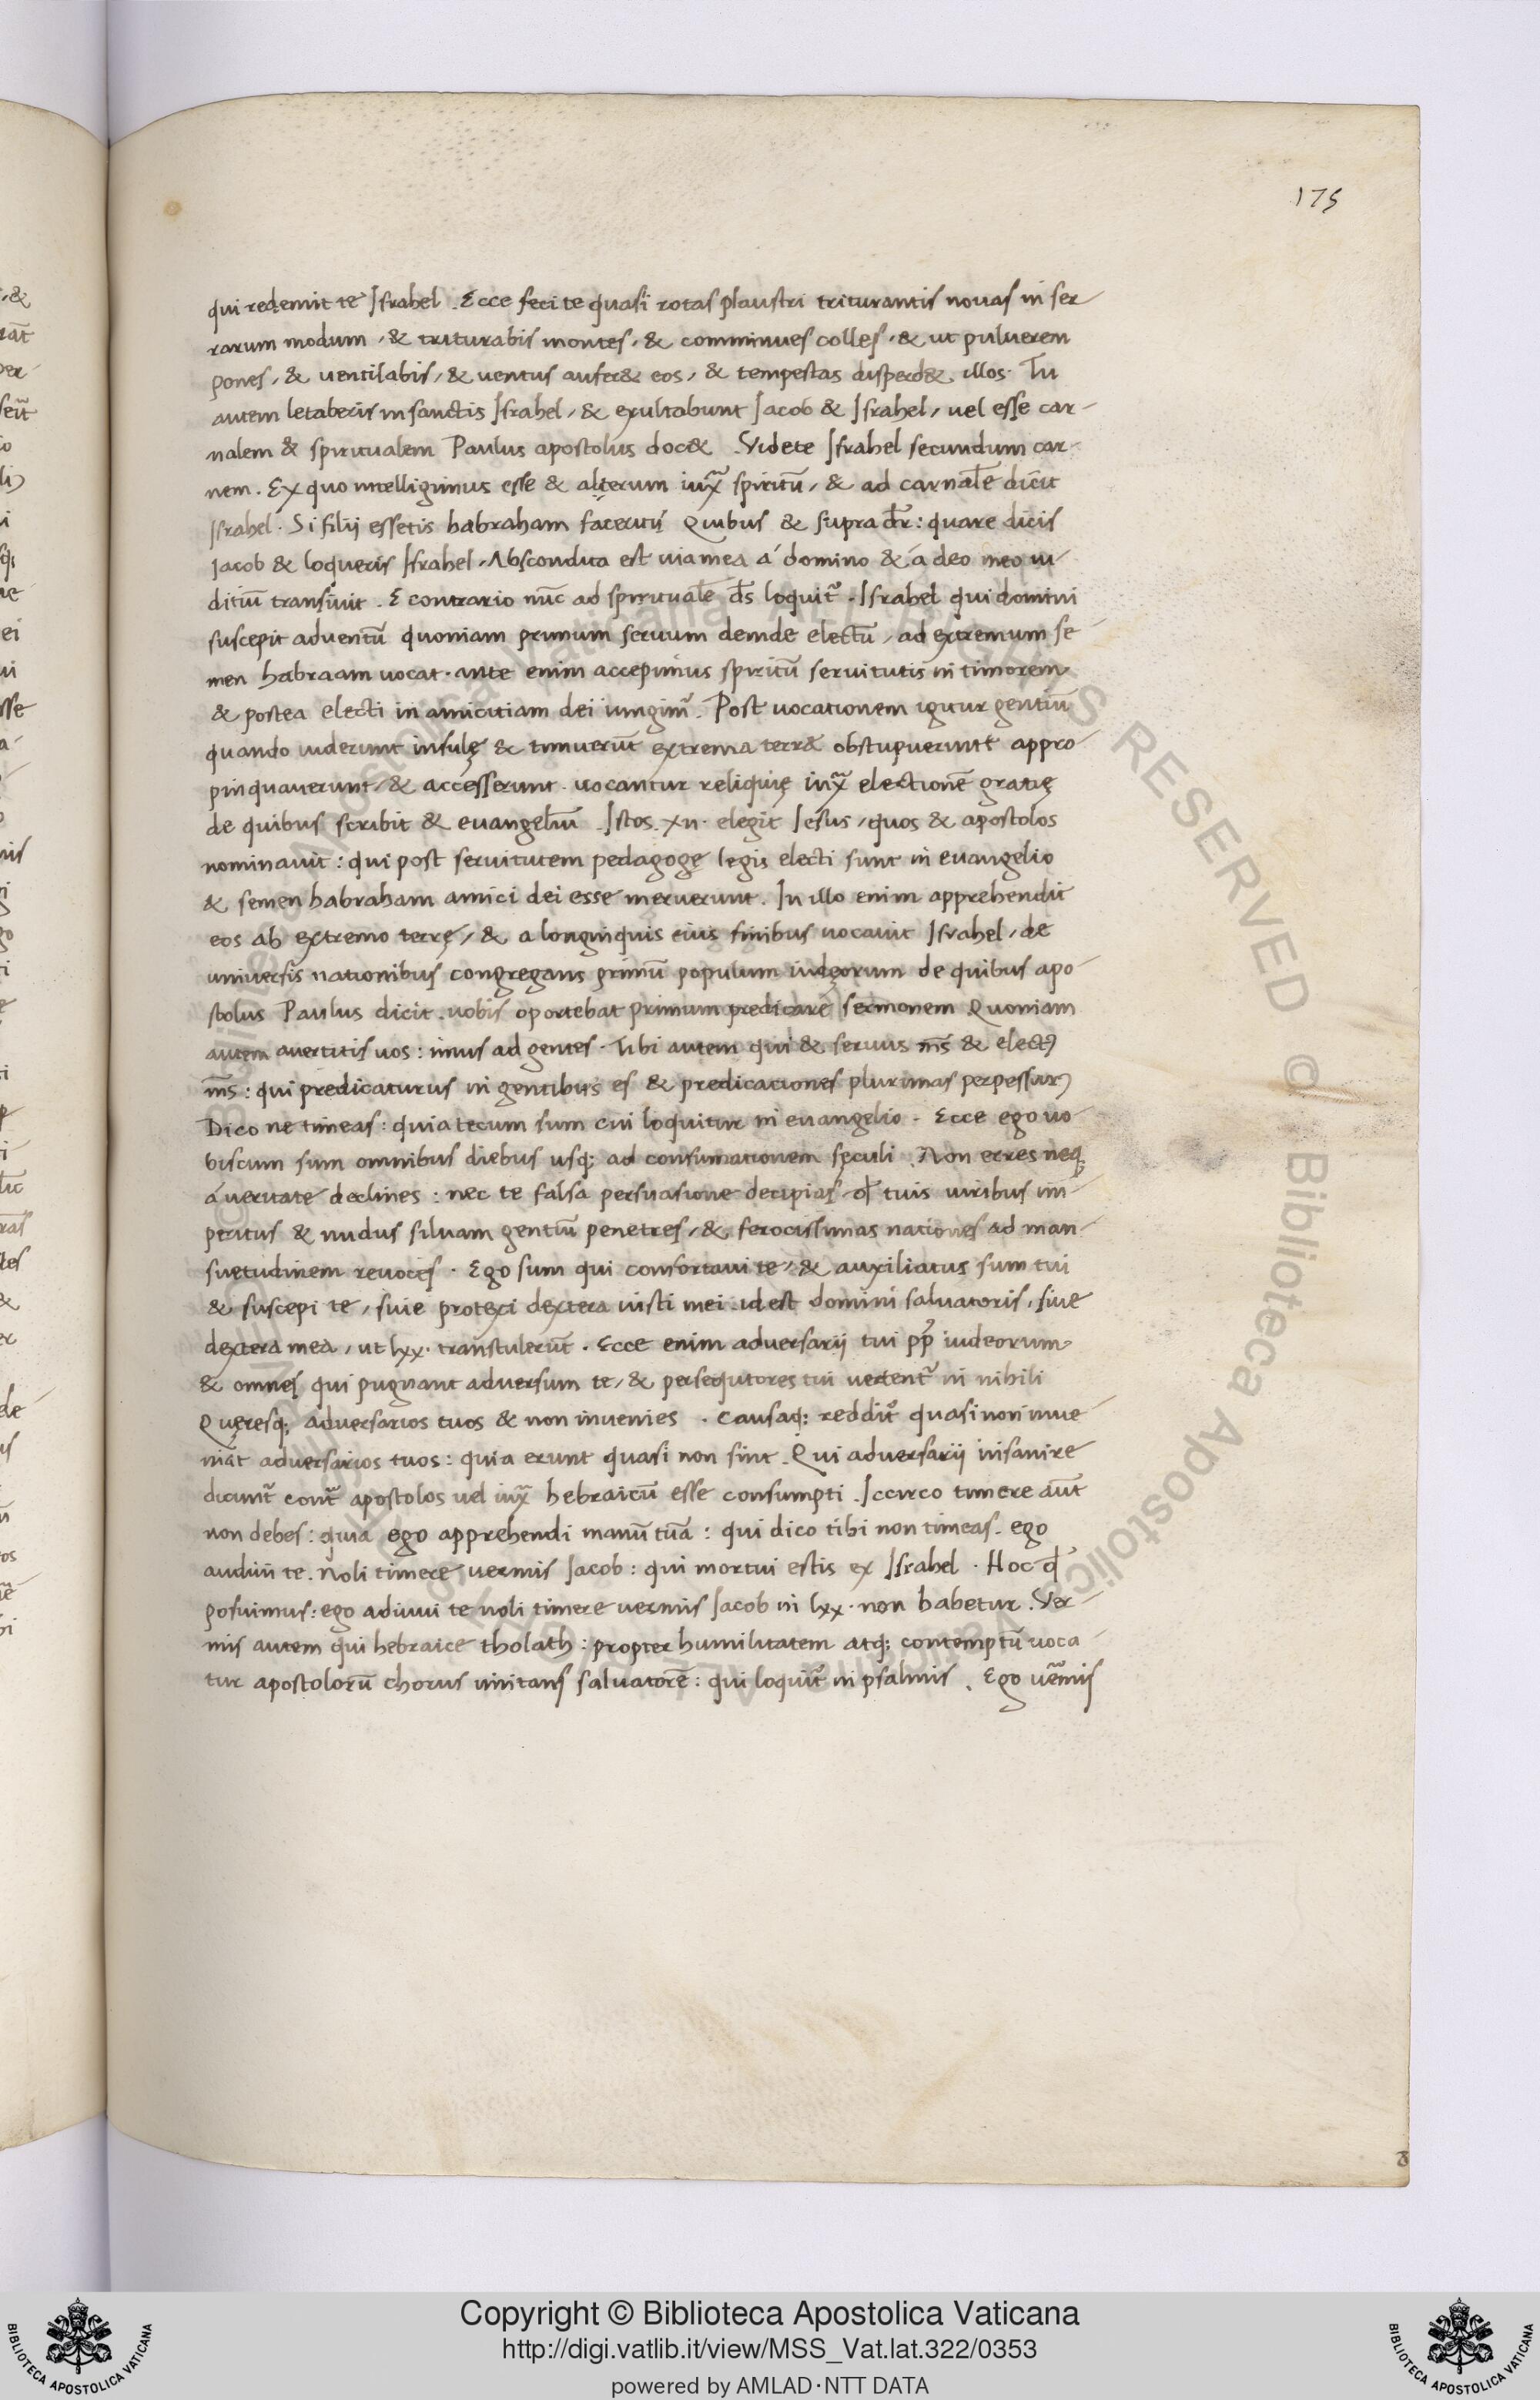 175
qui redemit te Israhel . Ecce feci te quasi rotas plaustri triturantis novas in ser-
rarum modum , & triturabis montes , & comminues colles , & ut pulverem
pones , & ventilabis , & ventus aufer& eos , & tempestas disperd& illos . Tu
autem letaberis in sanctis Israhel , & exultabunt Jacob & Israhel , vel esse car-
nalem & spiritualem Paulus apostolus doc& . Videte Israhel secundum car-
nem . Ex quo intelligimus esse & alterum iux̃ spiritū , & ad carnalē dicit
Israhel . Si filij essetis habraham Quibus & supra dr̄ : quare dicis
Jacob & loqueris Israhel . Abscondita est via mea á domino & á deo meo iu-
ditiū transivit . E contrario nūc ad spiritualē ds̄ loquit᷑ . Israhel qui domini
suscepit adventū quoniam primum servum deinde electū , ad extremum se-
men habraam vocat . ante enim accepimus spiritū servitutis in timorem
& postea electi in amicitiam dei iungim᷑ . Post vocationem igitur gentiū
quando viderunt insulę & timuerūt extrema terræ obstupuerunt appro-
pinquaverunt , & accesserunt . vocantur reliquię iux̃ electionē gratię
de quibus scribit & evangeliū . Istos . xii . elegit Jesus , quos & apostolos
nominavit : qui post servitutem pedagogę legis electi sunt in evangelio
& semen habraham amici dei esse meruerunt . In illo enim apprehendit
eos ab extremo terrę , & a longinquis eius finibus vocavit Israhel , de
universis nationibus congregans primū populum iudęorum de quibus apo-
stolus Paulus dicit . vobis oportebat primum predicare sermonem Quoniam
autem avertitis vos : imus ad gentes . Tibi autem qui & servus ms̄ & elect9
ms̄ : qui predicaturus in gentibus es & predicationes plurimas perpessur9
Dico ne timeas : quia tecum sum cui loquitur in evangelio . Ecce ego vo-
biscum sum omnibus diebus usq; ad consumationem sęculi . Non erres neq;
á veritate declines : nec te falsa persuasione decipias qđ tuis viribus im-
peritus & nudus silvam gentiū penetres , & ferocissimas nationes ad man-
suetudinem revoces . Ego sum qui confortavi te , & auxiliatus sum tui
& suscepi te , sive protexi dextera iusti mei . id est domini salvatoris , sive
dextera mea , ut lxx . transtulerūt . Ecce enim adversarij tui pp̄ iudeorum
& omnes qui pugnant adversum te , & persequtores tui vertent᷑ in nihili
Quęresq; adversarios tuos & non invenies . causaq; reddit᷑ quasi non inve-
niāt adversarios tuos : quia erunt quasi non sint . Qui adversarij insanire
dicunt᷑ cont᷑ apostolos vel iux̃ hebraicū esse consumpti . Iccirco timere aūt
non debes : quia ego apprehendi manū tuā : qui dico tibi non timeas . ego
audivi te . Noli timere vermis Jacob : qui mortui estis ex Israhel . Hoc qđ
posuimus : ego adiuvi te noli timere vermis Jacob in lxx . non habetur . Ver-
mis autem qui hebraice tholath : propter humilitatem atq; contemptū voca-
tur apostolorū chorus imitans salvatorē : qui loquit᷑ in psalmis . Ego vẽmis
Copyright © Biblioteca Apostolica Vaticana
http://digi.vatlib.it/view/MSS_Vat.lat.322/0353
powered by AMLAD·NTT DATA
BIBLIOTECA APOSTOLICA VATICANA
BIBLIOTECA APOSTOLICA VATICANA